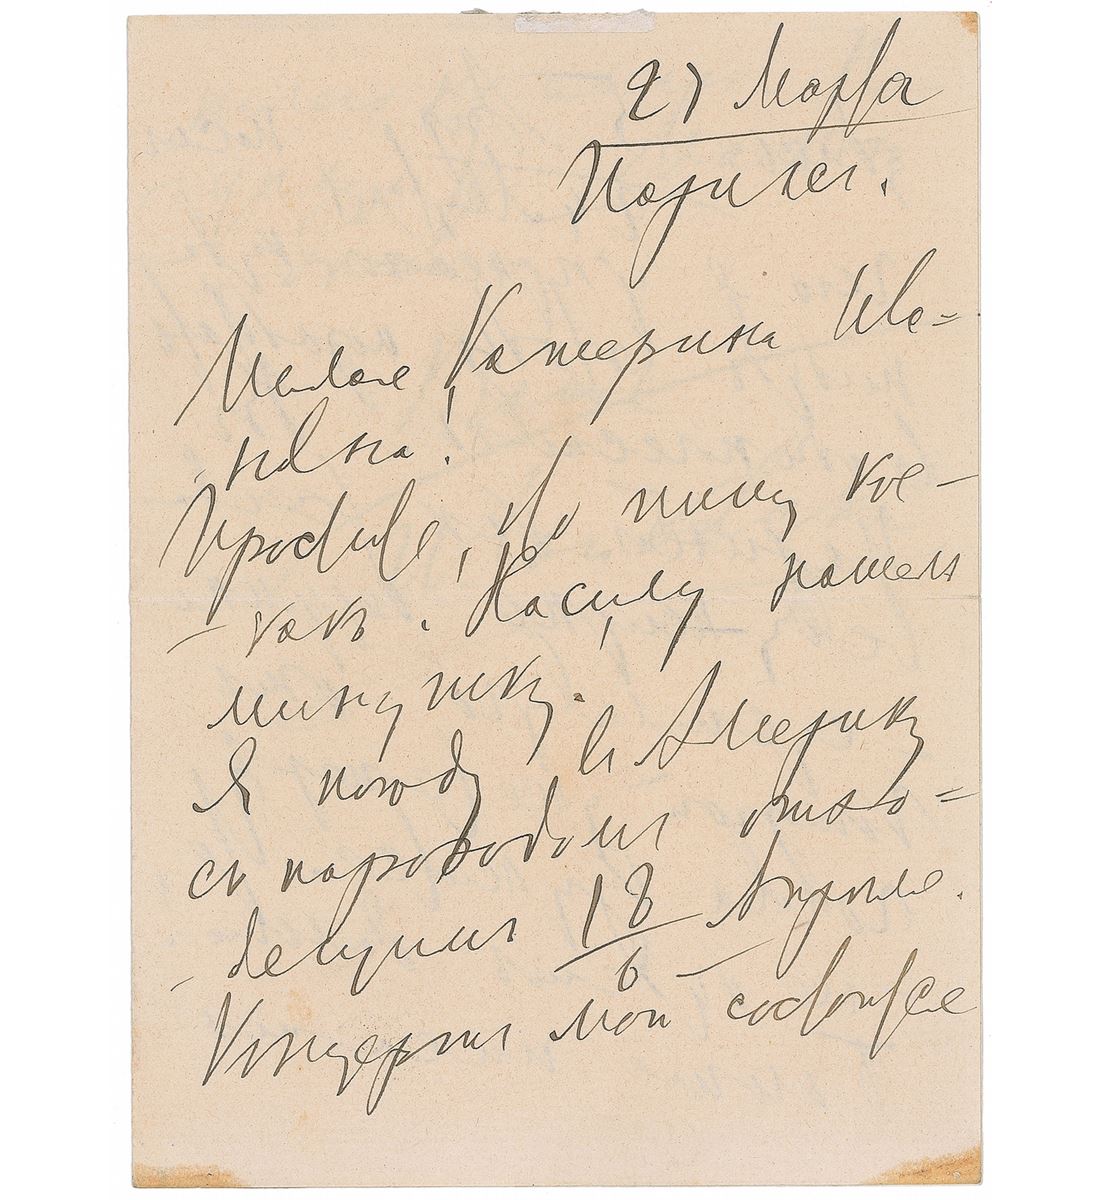 27 Марта
Парижъ.
Милая Катерина Ива=
новна!
Простите, что пишу кое-
- какъ. Насилу нашелъ
минутку.
Я поѣду въ Америку
съ пароходомъ отхо=
- дящимъ 18/6 Апрѣля.
Концертъ мой состоится